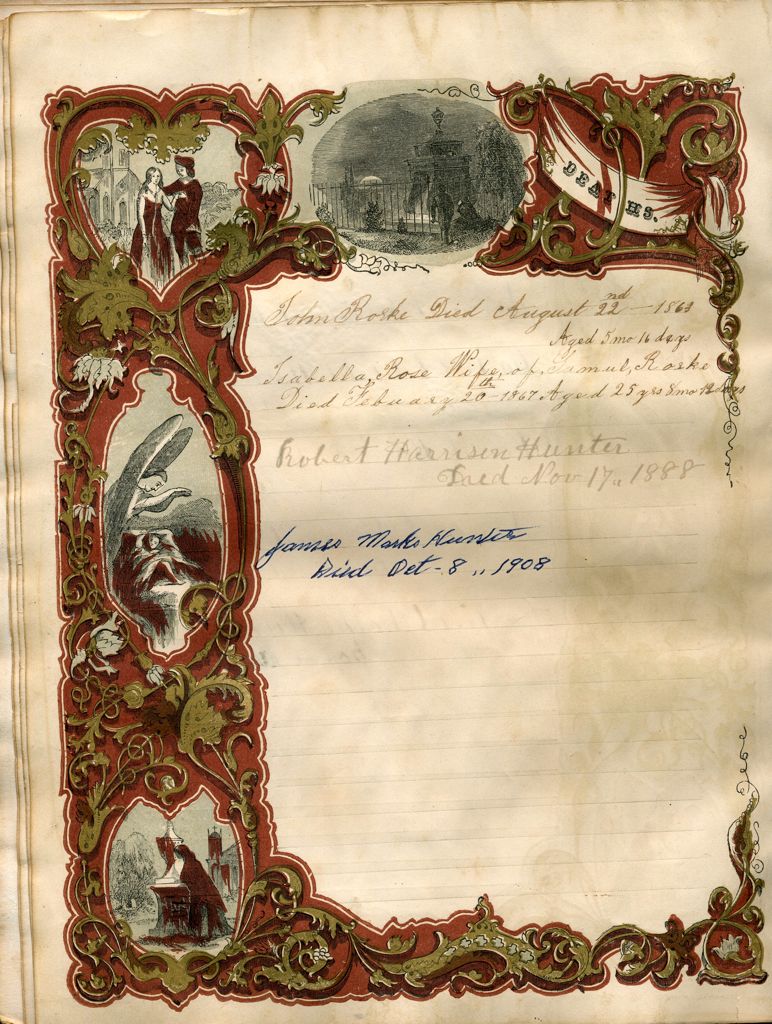 DEATHS.
John Roske Died August 22nd - 1863
Aged 5 mo 16 days
Isabella, Rose Wife, of, Samul, Roske
Died Febuary 20th - 1867 Aged 25 yrs 8 mo 12 days
Robert Harrison Hunter
Died Nov 17, 1888
James Marks Hunter
Died Oct - 8 ,, 1908